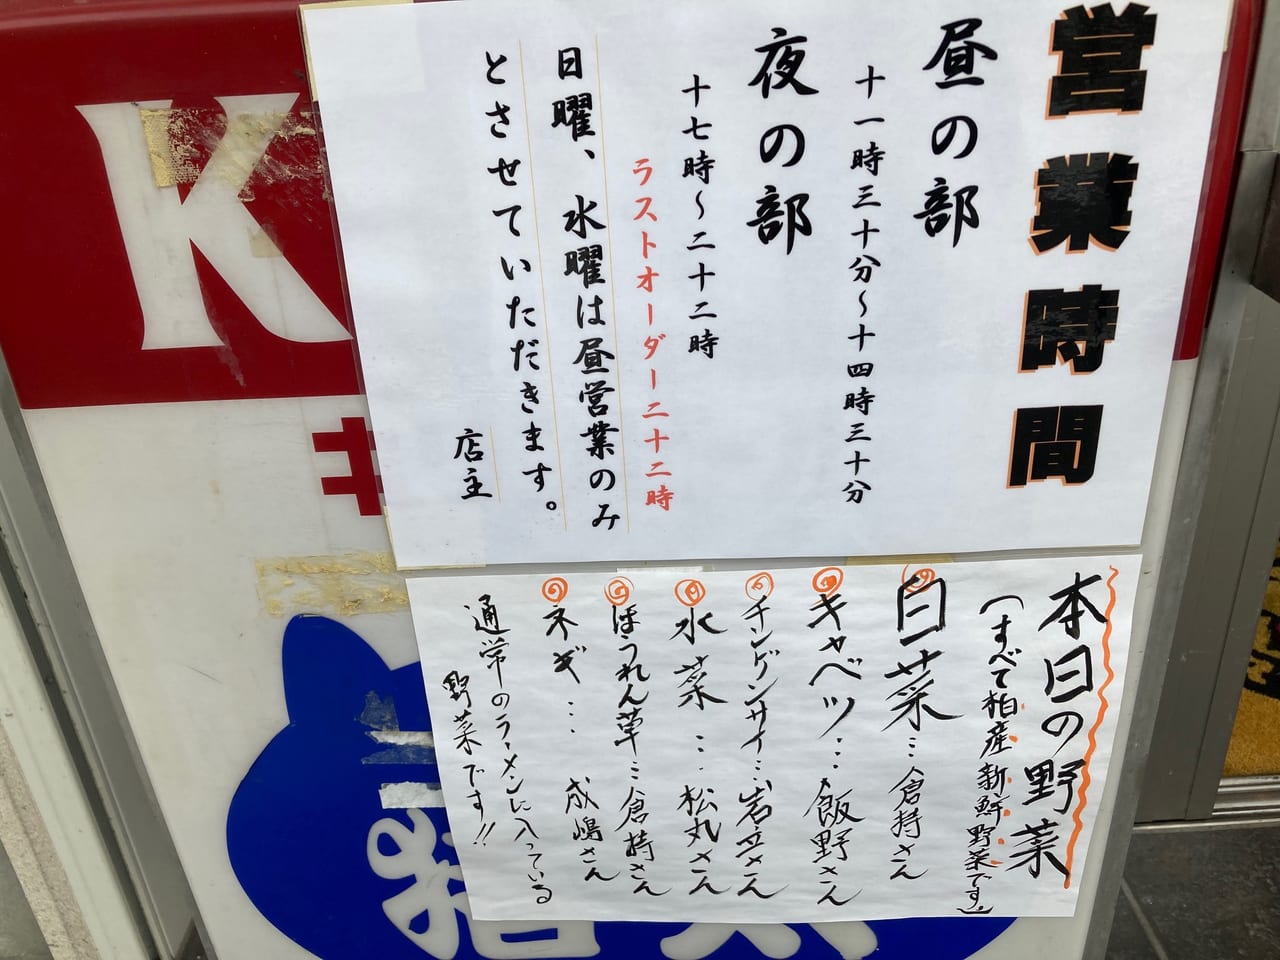 営業時間
昼の部
十一時三十分〜十四時三十分
夜の部
十七時〜二十二時
ラストオーダー二十二時
日曜、水曜は昼営業のみ
とさせていただきます。
店主
本日の野菜
(すべて柏産新鮮野菜です。)
白菜…倉持さん
キャベツ…飯野さん
チンゲンサイ…岩立さん
水菜…松丸さん
ほうれん草…倉持さん
ネギ…成嶋さん
通常のラーメンに入っている
野菜です!!
K